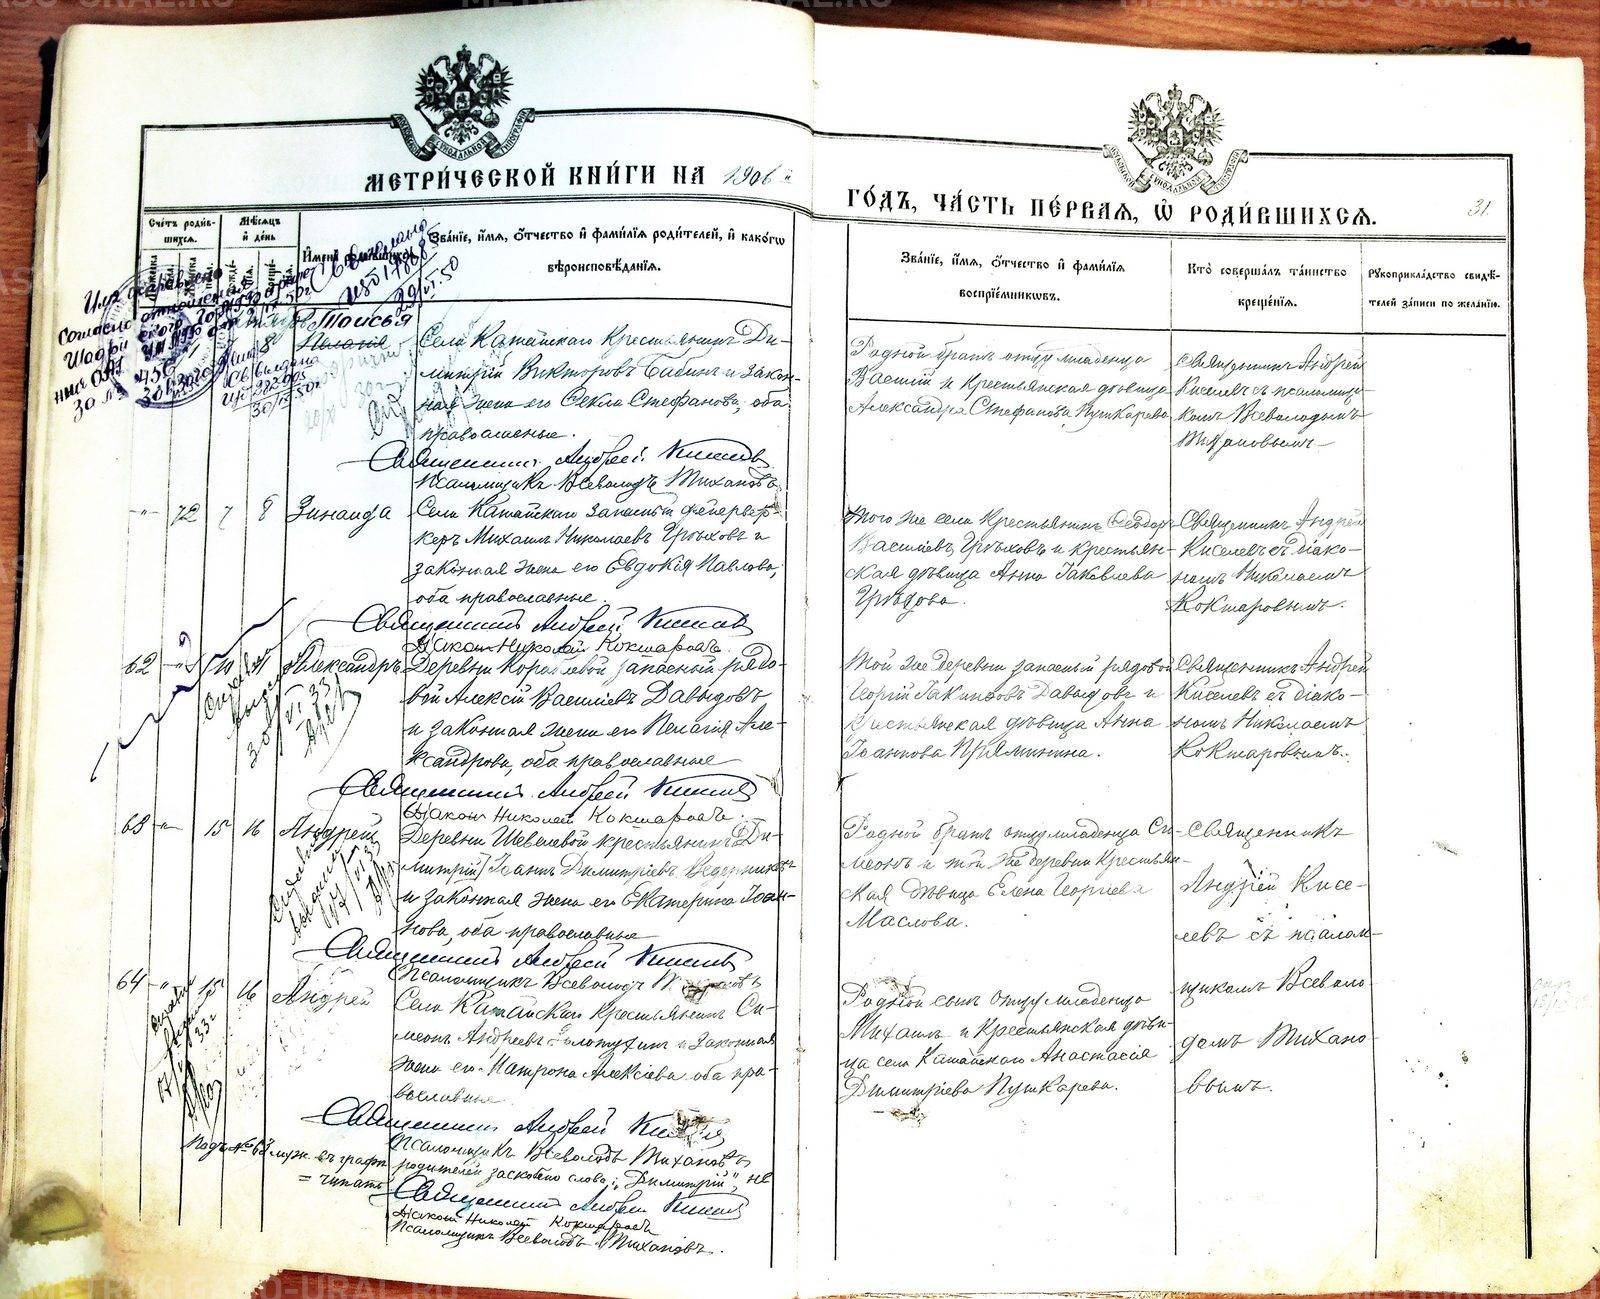 МЕТРИ́ЧЕСКОЙ КНИ́ГИ НА 1906 й
ГО́ДЪ, ЧА́СТЬ ПЕ́РВАЯ, Ѡ҆ РОДИ́ВШИХСЯ.
31.
Сче́тъ роди́в-
шихся.
Мѣ́сяцъ
и҆ де́нь
И҆мена̀ роди́вшихся.
Зва́нїе, и҆́мя, ѻ҆́тчество и҆ фами́лїя роди́телей, и҆ како́гѡ
вѣроисповѣ́данїя.
Зва́нїе, и҆́мя, ѻ҆́тчество и҆ фами́лїя
воспрїе́мникѡвъ.
Кто̀ соверша́лъ та́инство
креще́нїя.
Рꙋкоприкла́дство свидѣ́-
телей за́писи по жела́нїю.
Имя исправлено
Согласно отношения
Таисья
Пелагія
8
Села Катайскаго Крестьянинъ Ди-
митрій Викторовъ Бабинъ и закон-
ная жена его Ѳекла Стефанова, оба
православные.
Священникъ Андрей Киселевъ
Псаломщикъ Всеволодъ Тихановъ
Родной братъ отцу младенца
Василій и Крестьянская дѣвица
Александра Стефанова Пушкарева
Священникъ Андрей
Киселевъ съ псаломщи-
комъ Всеволодомъ
Тихановымъ
-"- 72 7 8 Зинаида
Села Катайскаго запасный фейервер-
керъ Михаилъ Николаевъ Грѣховъ и
законная жена его Евдокія Павлова,
оба православные.
Священникъ Андрей Киселевъ
Діаконъ Николай Кокшаровъ
Того же села Крестьянинъ Ѳеодоръ
Василіевъ Грѣховъ и крестьян-
ская дѣвица Анна Іаковлева
Грѣхова.
Священникъ Андрей
Киселевъ съ діако-
номъ Николаемъ
Кокшаровымъ.
62 -"- Александръ
Деревни Корюковой запасный рядо-
вой Алексій Василіевъ Давыдовъ
и законная жена его Пелагія Але-
ксандрова, оба православные
Священникъ Андрей Киселевъ
Діаконъ Николай Кокшаровъ.
Той же деревни запасный рядовой
Георгій Іакинѳовъ Давыдовъ и
крестьянская дѣвица Анна
Іоаннова Пряминина.
Священникъ Андрей
Киселевъ съ діако-
номъ Николаемъ
Кокшаровымъ.
63 -"- 15 16 Андрей
Деревни Шевелевой крестьянинъ (Ди-
митрій) Іоаннъ Димитріевъ Ведерниковъ
и законная жена его Екатерина Іоан-
нова, оба православные
Священникъ Андрей Киселевъ
Псаломщикъ Всеволодъ Тихановъ
Родной братъ отцу младенца Си-
меонъ и той же деревни Крестьян-
ская дѣвица Елена Георгіева
Маслова.
Священникъ
Андрей Кисе-
левъ съ псалом-
щикомъ Всеволо-
домъ Тихано-
вымъ.
64 -"- 15 16 Андрей
Села Катайскаго Крестьянинъ Си-
меонъ Андреевъ Золотухинъ и законная
жена его Матрона Алексіева оба пра-
вославные
Священникъ Андрей Киселевъ
Псаломщикъ Всеволодъ Тихановъ
Родной сынъ отцу младенца
Михаилъ и Крестьянская дѣви-
ца села Катайскаго Анастасія
Димитріева Пушкарева.
Подъ № 63 муж. въ графѣ родителей заскоблено слово: "Димитрій", не
= читать
Священникъ Андрей Киселевъ
Діаконъ Николай Кокшаровъ
Псаломщикъ Всеволодъ Тихановъ.